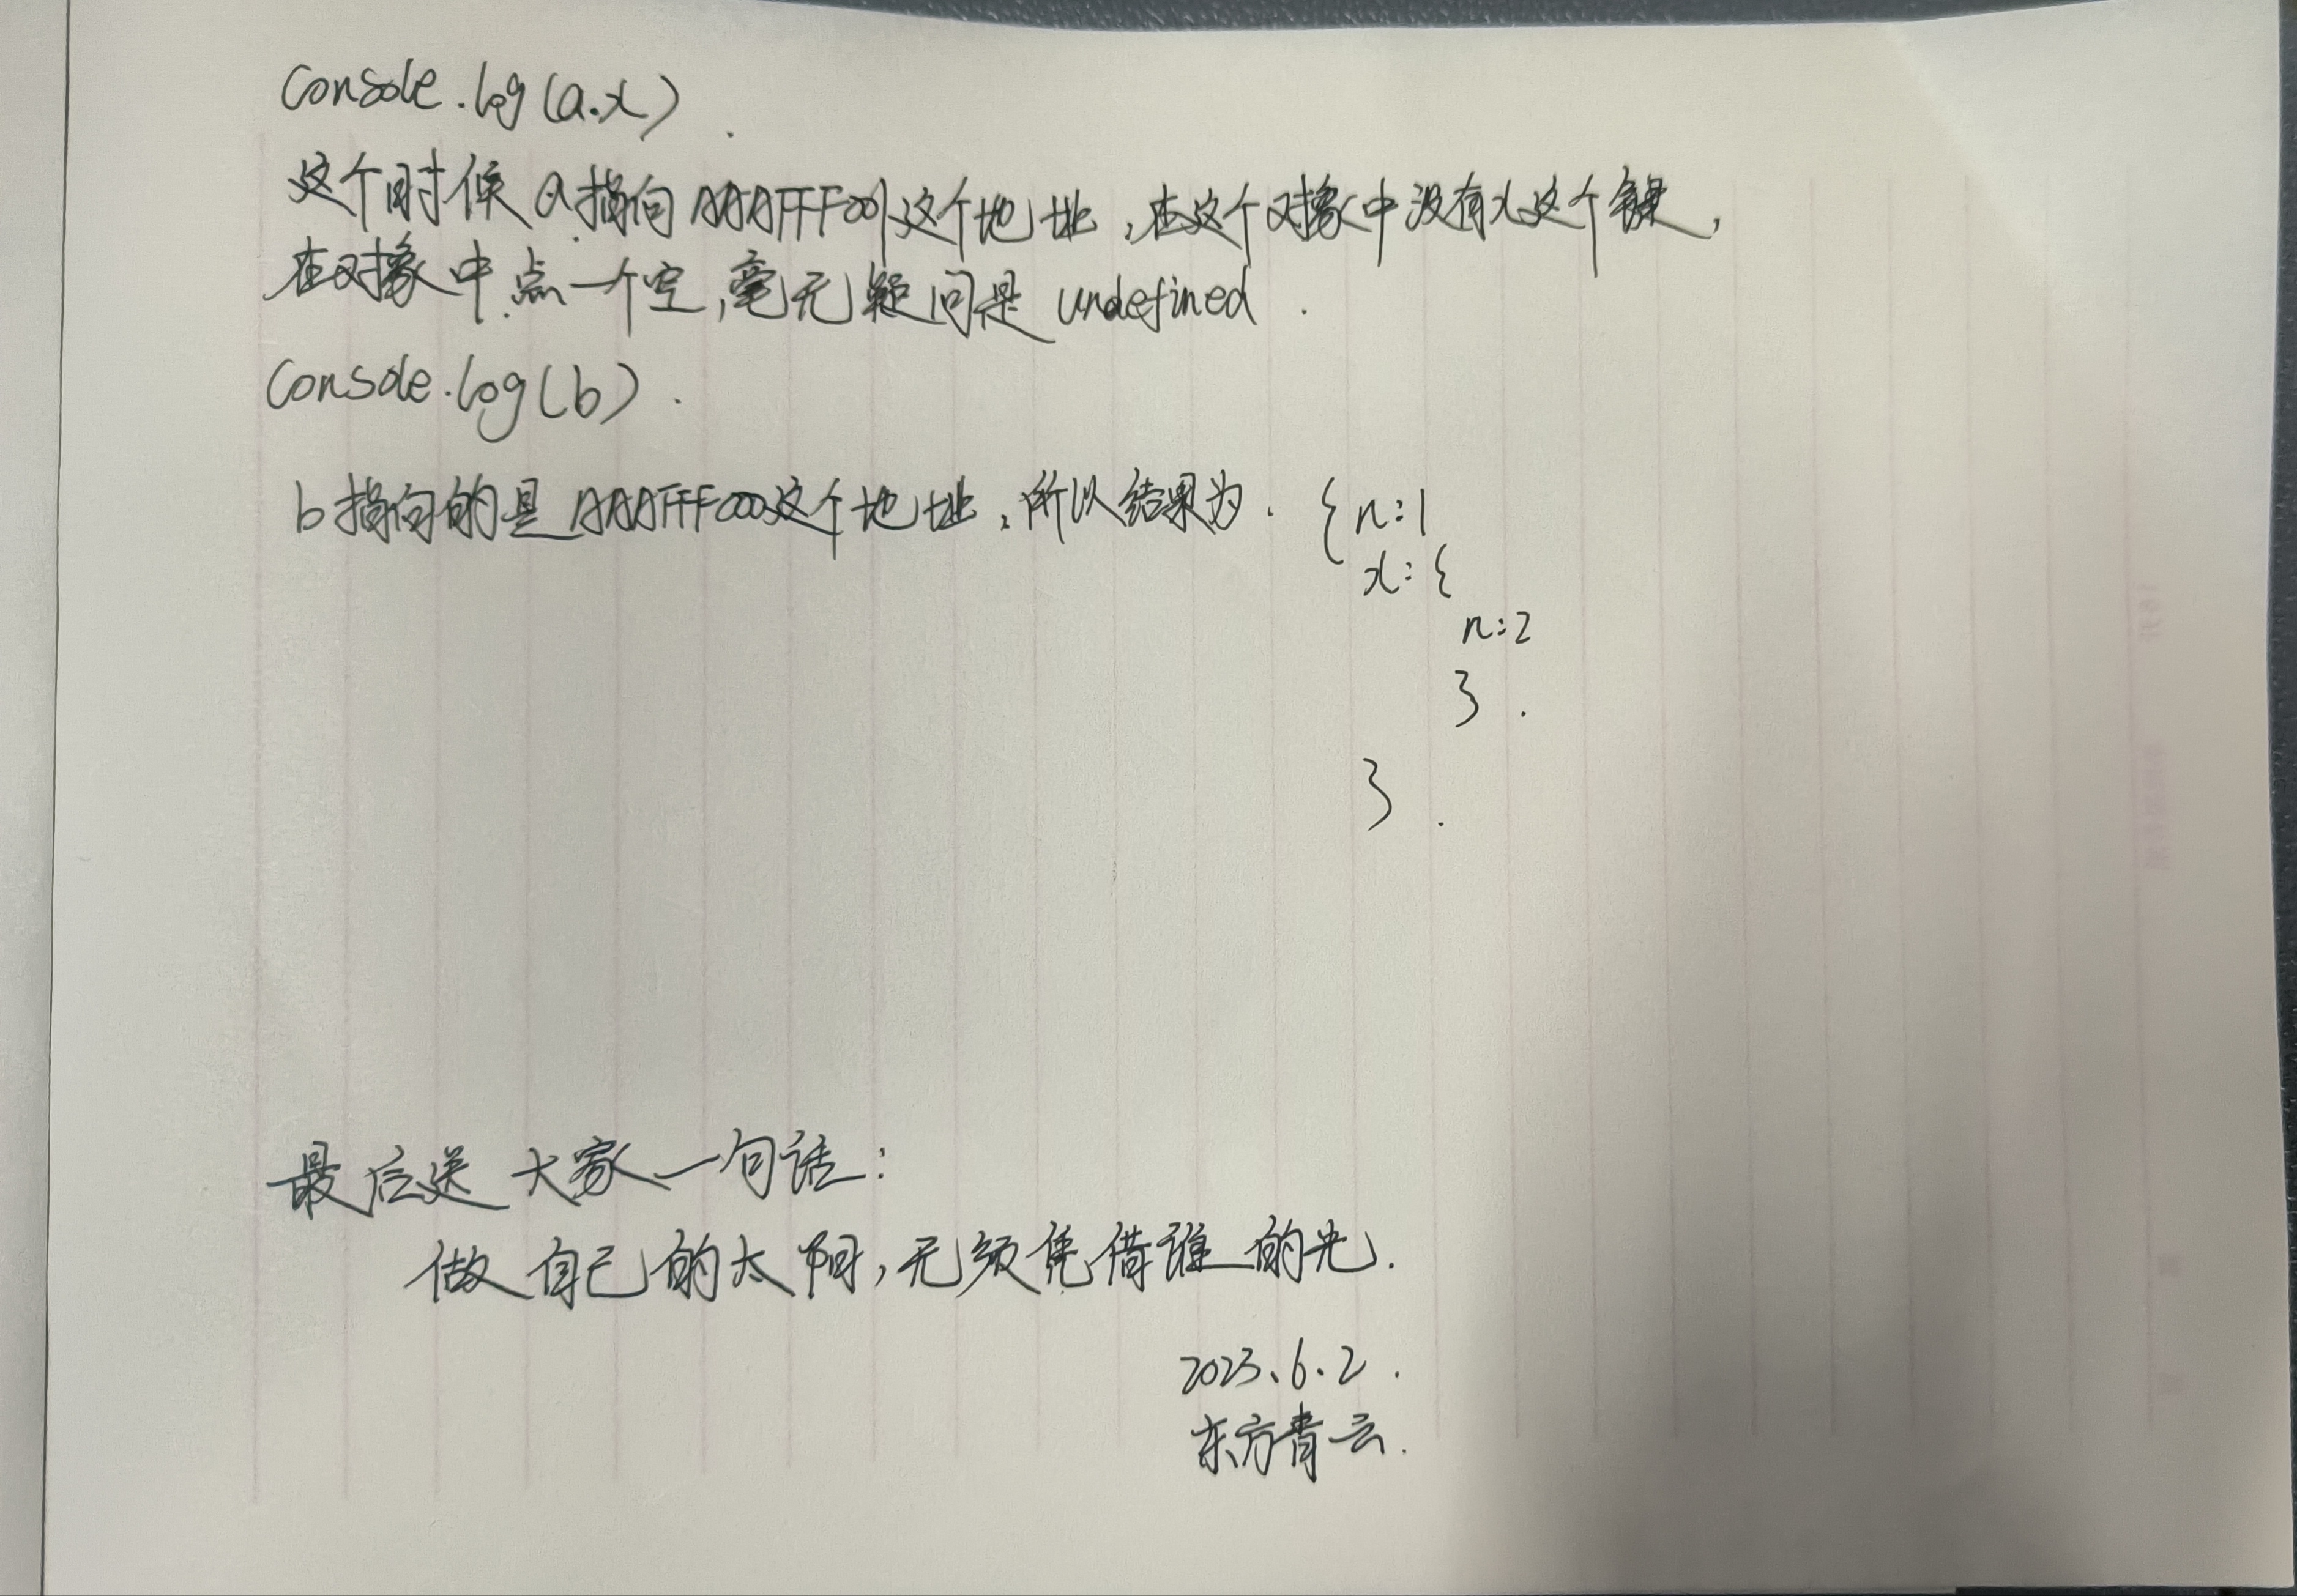 console.log(a.x).
这个时候a指向AAAFFF001这个地址,在这个对象中没有x这个键,
在对象中点一个空,毫无疑问是undefined.
console.log(b).
b指向的是AAAFFF000这个地址,所以结果为. {n:1
x:{
n:2
}.
}.
最后送大家一句话:
做自己的太阳,无须凭借谁的光.
2023.6.2.
东方青云.